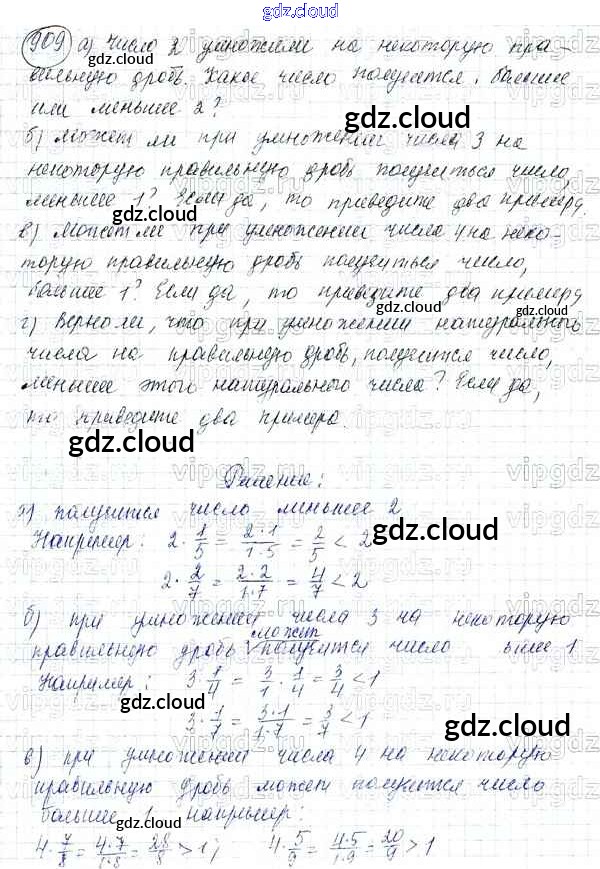 gdz.cloud
909 а) Число 2 умножили на некоторую пра-
вильную дробь. Какое число получится, большее
или меньшее 2?
gdz.cloud
б) Может ли при умножении числа 3 на
некоторую правильную дробь получиться число,
меньшее 1? Если да, то приведите два примера.
gdz.cloud gdz.cloud
в) Может ли при умножении числа 4 на неко-
торую правильную дробь получиться число,
большее 1? Если да, то приведите два примера
gdz.cloud gdz.cloud
г) Верно ли, что при умножении натурального
числа на правильную дробь, получится число,
меньшее этого натурального числа? Если да,
то приведите два примера.
gdz.cloud
Решение:
а) получится число меньшее 2
gdz.cloud
Например: 2 · 1/5 = 2·1/1·5 = 2/5 < 2
2 · 2/7 = 2·2/1·7 = 4/7 < 2
gdz.cloud
б) при умножении числа 3 на некоторую
может
правильную дробь получится число 1
Например: 3 · 1/4 = 3/1 · 1/4 = 3/4 < 1
gdz.cloud gdz.cloud
3 · 1/7 = 3·1/1·7 = 3/7 < 1
в) при умножении числа 4 на некоторую
правильную дробь может получится число
большее 1 например:
gdz.cloud gdz.cloud
4 · 7/8 = 4·7/1·8 = 28/8 > 1; 4 · 5/9 = 4·5/1·9 = 20/9 > 1